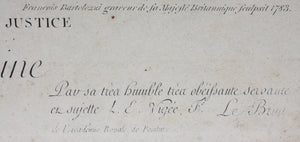 François Bartolozzi graveur de sa Majesté Britannique sculpsit 1783.
JUSTICE
ine
Par sa très humble très obeissante servante
et sujette L. E. Vigée, Fe. Le Brun
de l'Académie Royale, de Peinture